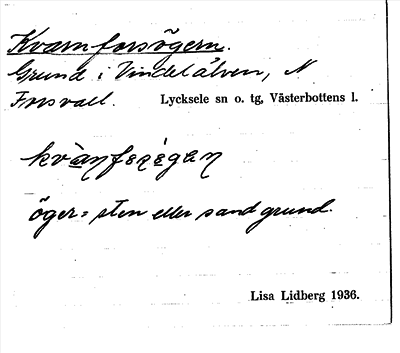 Kvarnforsögern.
Grund i Vindelälven, N
Forsvall. Lycksele sn o. tg, Västerbottens l.
öger = sten eller sandgrund.
Lisa Lidberg 1936.